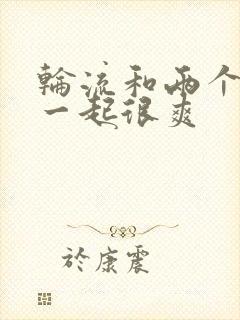 輪流和兩个
一起很爽
於康震